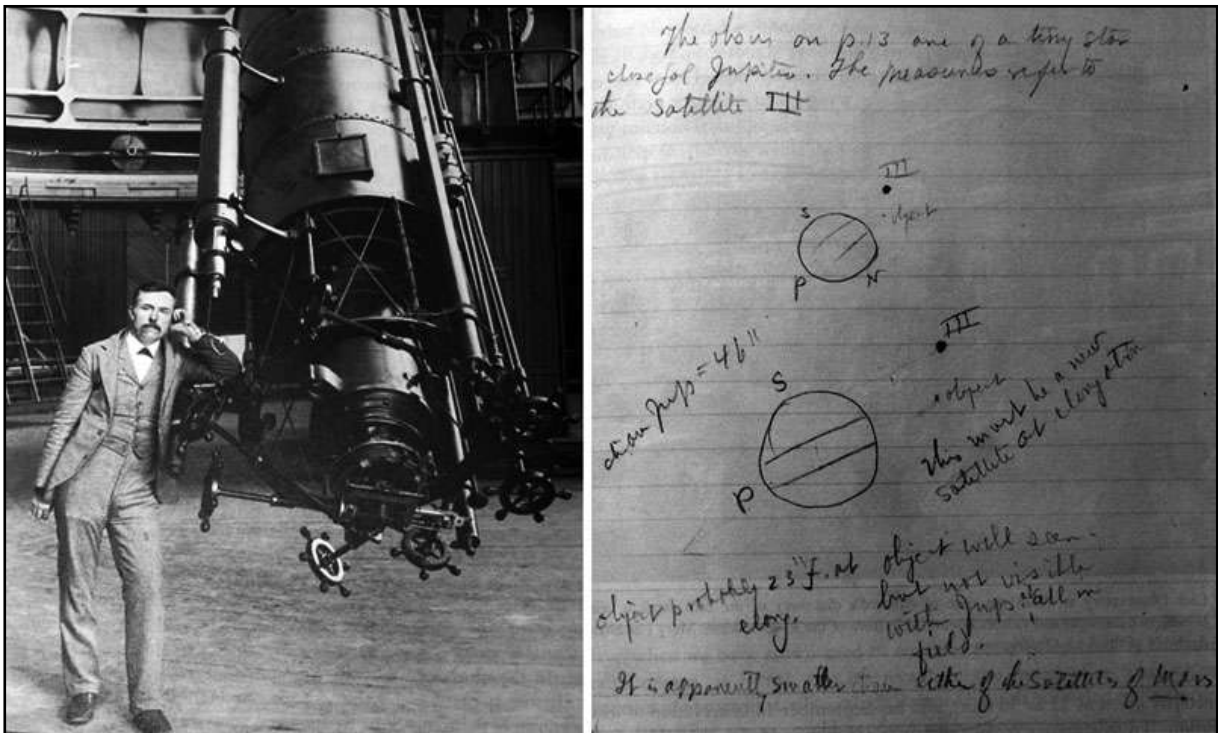 The obser on p.13 are of a tiny star
close f of Jupiter. The measures refer to
the satellite III
III
object
S
P
N
III
diam Jup = 46"
S
object
This must be a new
satellite at elongation
P
object probably 23" f. at
elong.
object well seen
but not visible
with Jup. at all in
field.
It is apparently smaller than either of the satellites of Mars